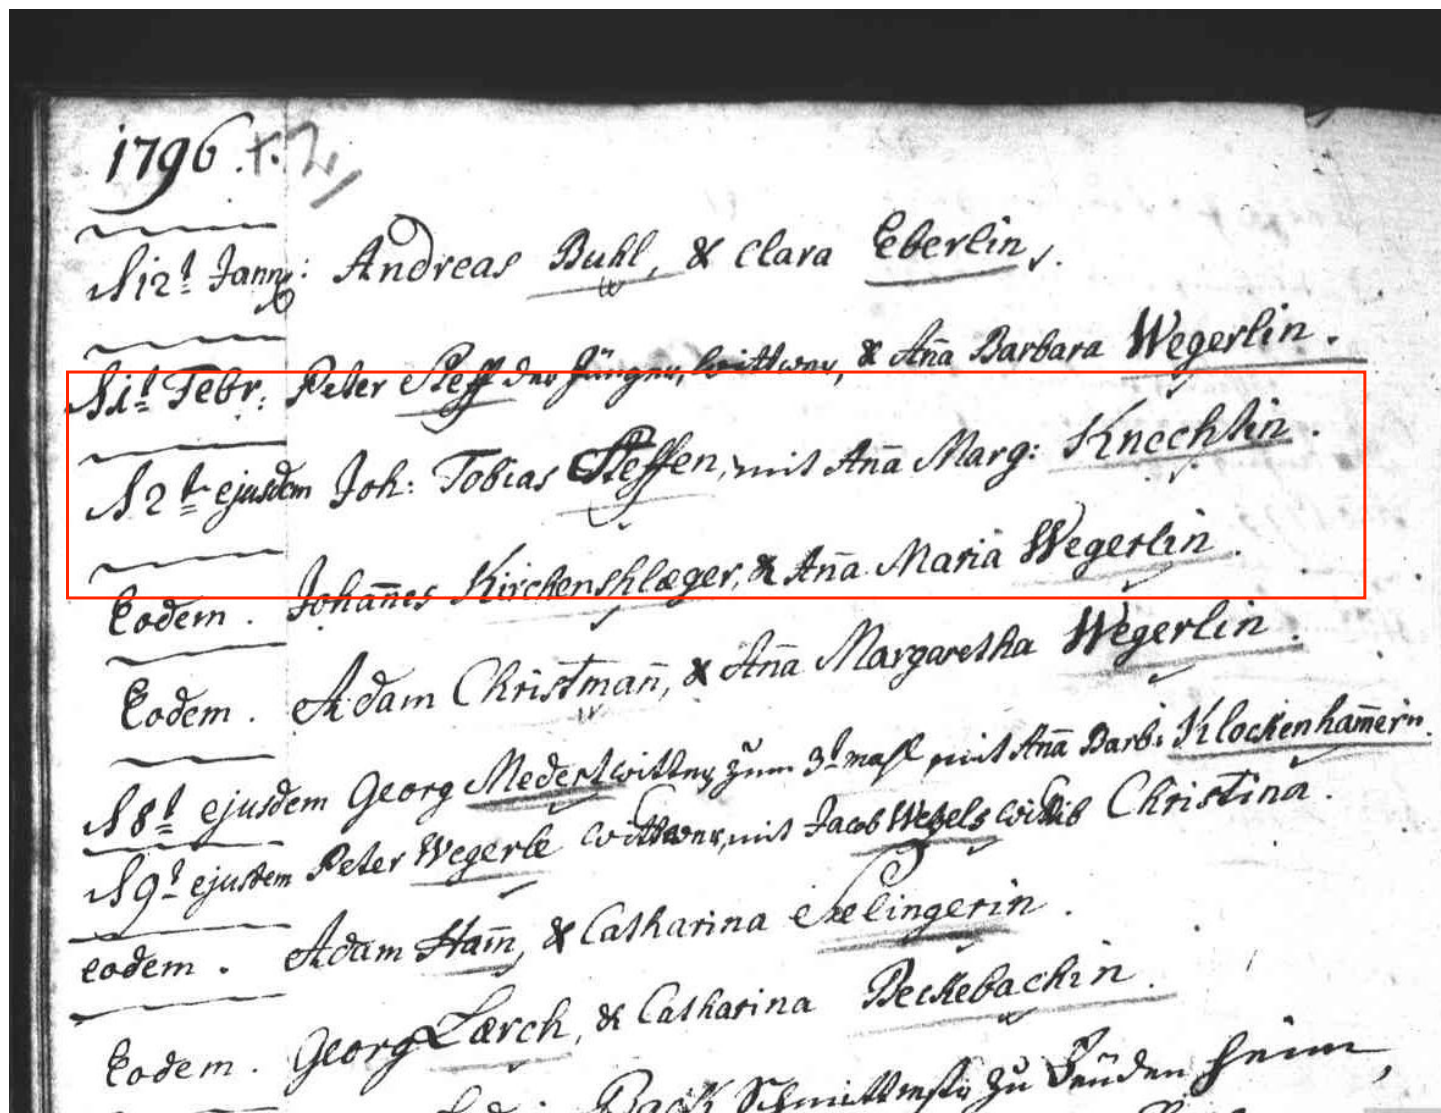 1796. t. 2,
d 12t Jann: Andreas Buhl, & Clara Eberlin.
d 1t Febr: Peter Steff der Jünger, wittwer, & Aña Barbara Wegerlin.
d 2t ejusdem Joh: Tobias Steffen, mit Aña Marg: Knechtin.
Eodem. Johañes Kirchenshlæger, & Aña Maria Wegerlin.
Eodem. Adam Christmañ, & Aña Margaretha Wegerlin.
d 8t ejusdem Georg Medert wittwer zum 3t mahl mit Aña Barb: Klockenham̃erin.
d 9t ejusdem Peter Wegerle wittwer, mit Jacob Wetzels wittib Christina.
eodem. Adam Ham̃, & Catharina Sælingerin.
Eodem. Georg Lærch, & Catharina Beckebachin.
zu heim,